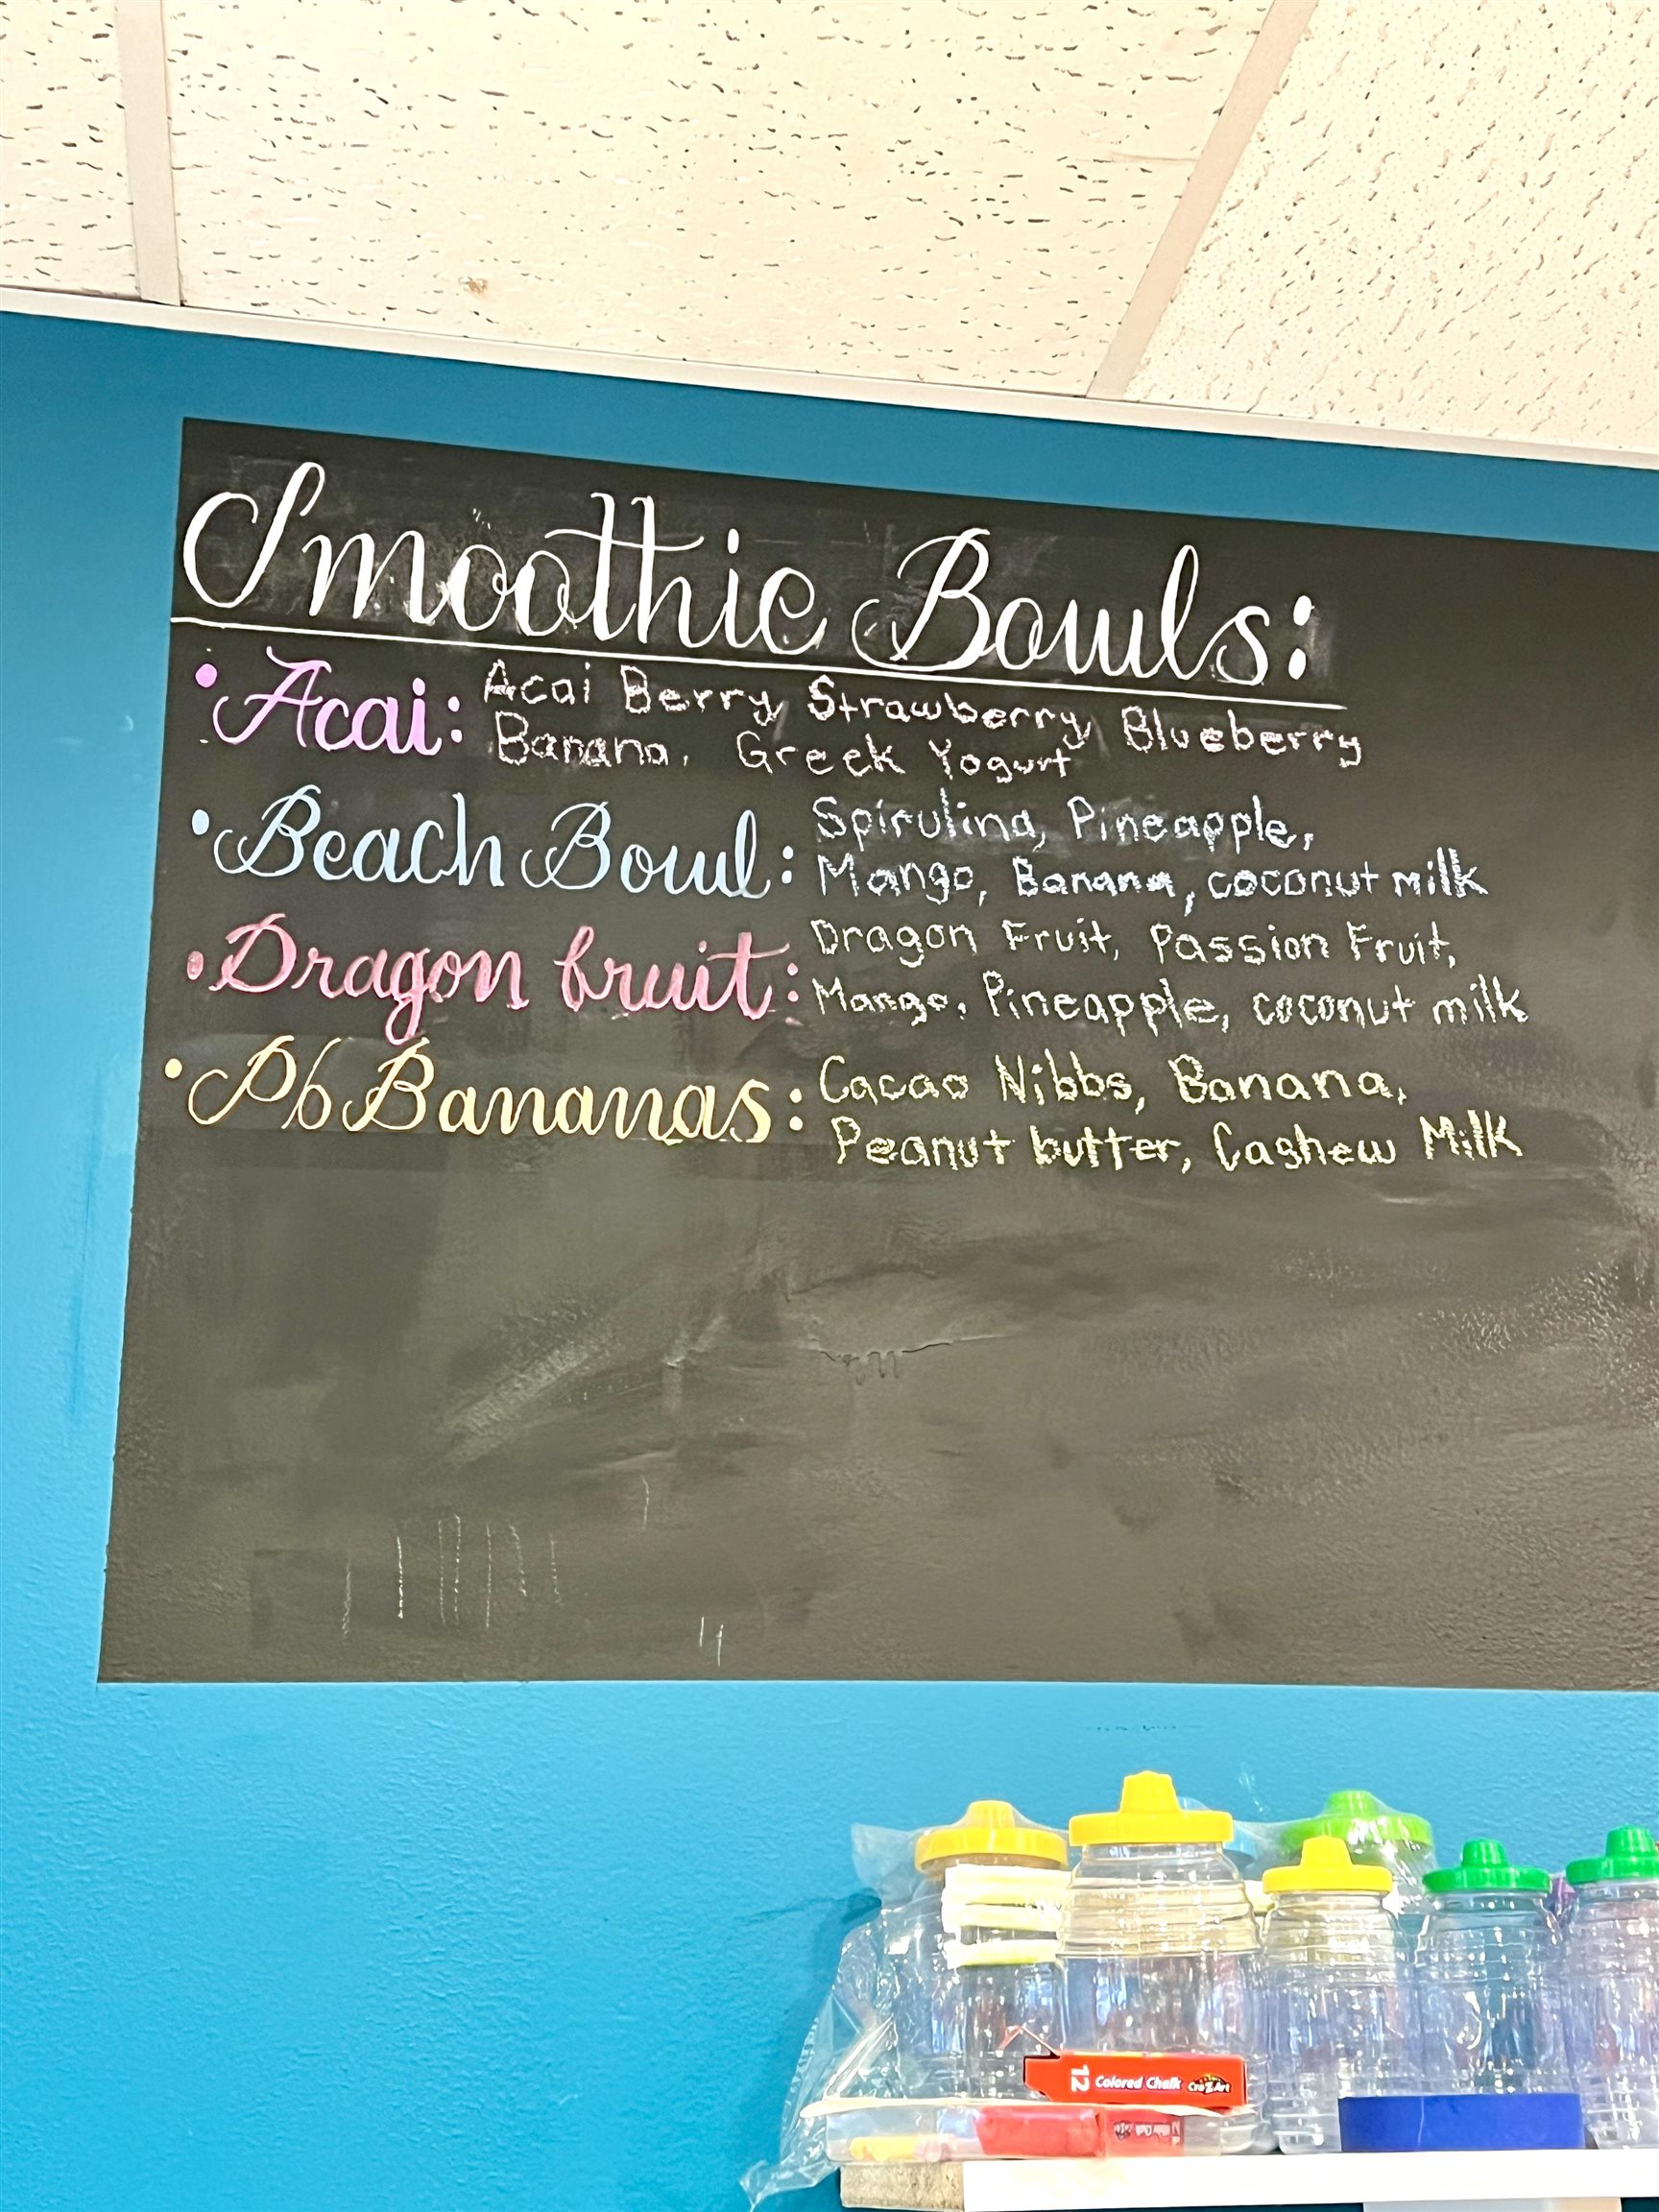 Smoothie Bowls:
• Acai: Acai Berry, Strawberry, Blueberry
Banana, Greek Yogurt
• Beach Bowl: Spirulina, Pineapple,
Mango, Banana, coconut milk
• Dragon fruit: Dragon Fruit, Passion Fruit,
Mango, Pineapple, coconut milk
• Pb Bananas: Cacao Nibbs, Banana,
Peanut butter, Cashew Milk
12 Colored Chalk Cra-Z-Art